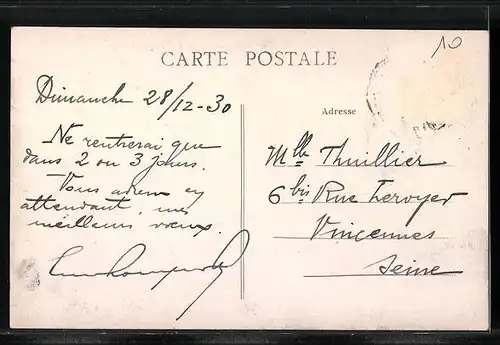 CARTE POSTALE
10
Dimanche 28/12-30
Adresse
Ne rentrerai que
dans 2 ou 3 jours.
Vous en
attendant, mes
meilleurs vœux.
Mlle Thuillier
6 bis Rue
Vincennes
Seine